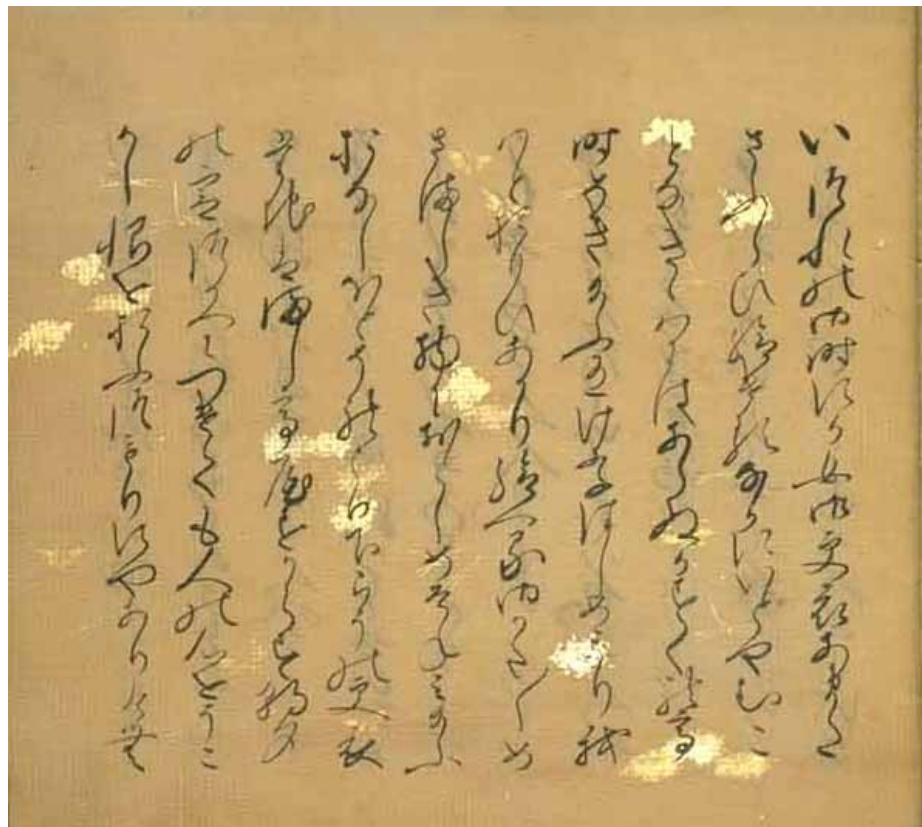 いつれの御時にか女御更衣あまた
さふらひ給ける中にいとやむこ
となきゝはにはあらぬかすくれて
時めきたまふ有けりはしめより我
はとおもひあかり給へる御かた〱め
さましき物におとしめそねみたまふ
おなしほとそれより下らうの更衣
たちはましてやすからす朝夕
の宮つかへにつけても人の心をうこ
かし恨をおふつもりにやありけむ